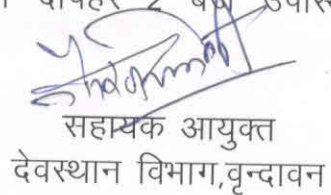 दोपहर 2 बजे
सहायक आयुक्त
देवस्थान विभाग,वृन्दावन